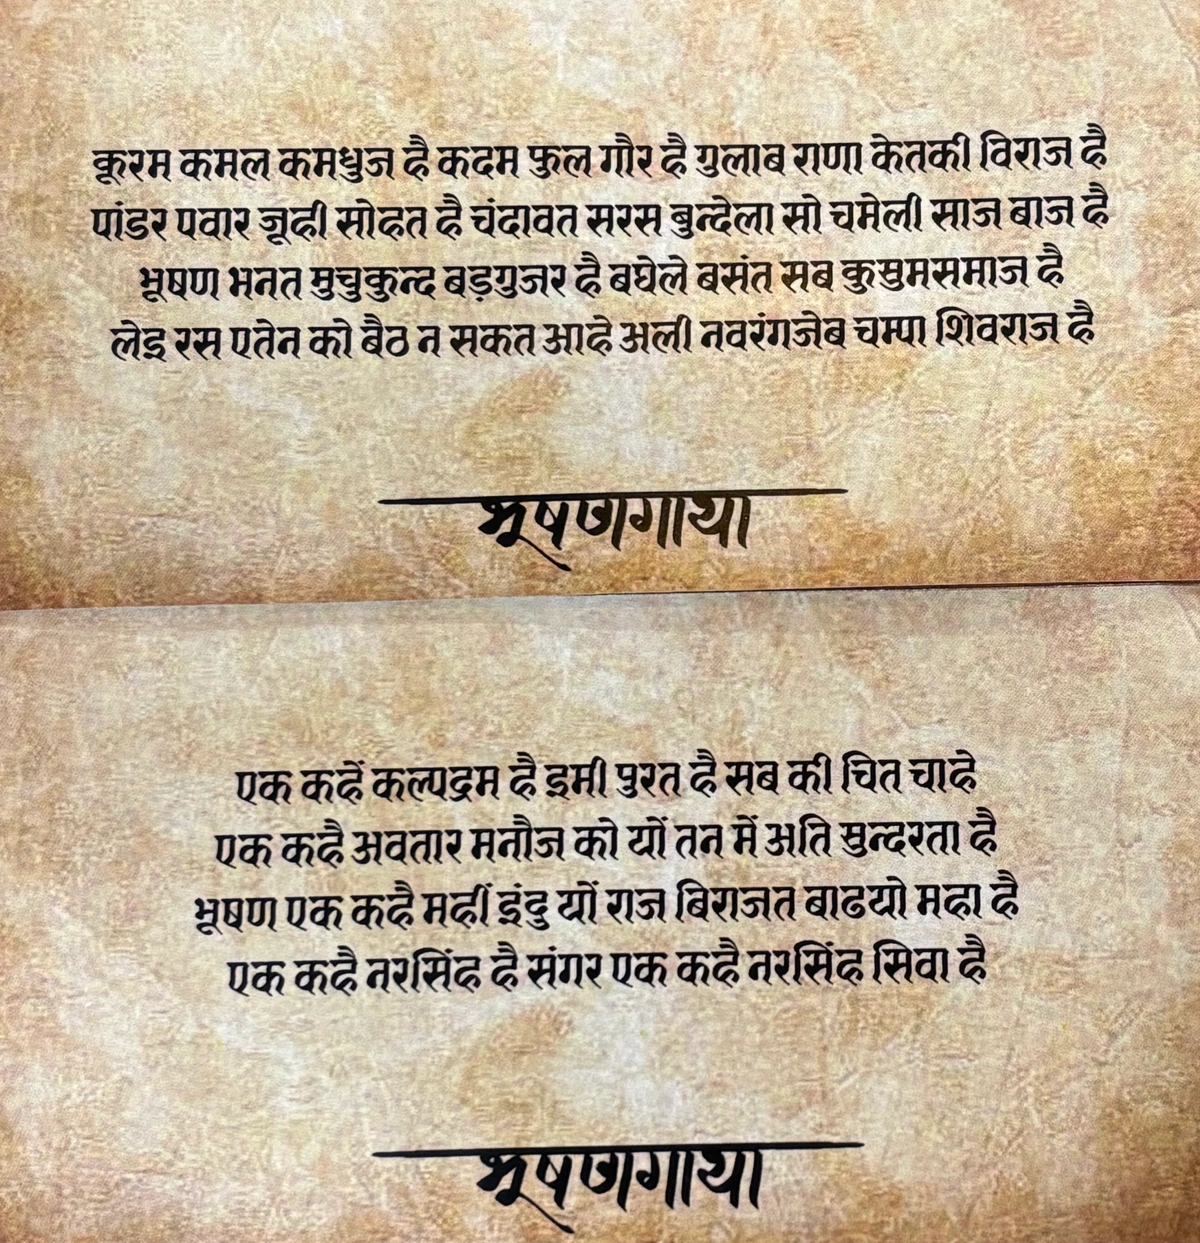 कूरम कमल कमधुज है कदम फुल गौर है गुलाब राणा केतकी विराज है
पांडर पवार जूही सोहत है चंदावत सरस बुन्देला सो चमेली साज बाज है
भूषण भनत मुचुकुन्द बड़गुजर है बघेले बसंत सब कुसुमसमाज है
लेइ रस एतेन को बैठ न सकत आहे अली नवरंगजेब चम्पा शिवराज है
भूषणगाथा
एक कहें कल्पद्रम है इमी पुरत है सब की चित चाहे
एक कहै अवतार मनौज को यों तन में अति सुन्दरता है
भूषण एक कहै महीं इंदु यों राज बिराजत बाढयो महा है
एक कहै नरसिंह है संगर एक कहै नरसिंह सिवा है
भूषणगाथा